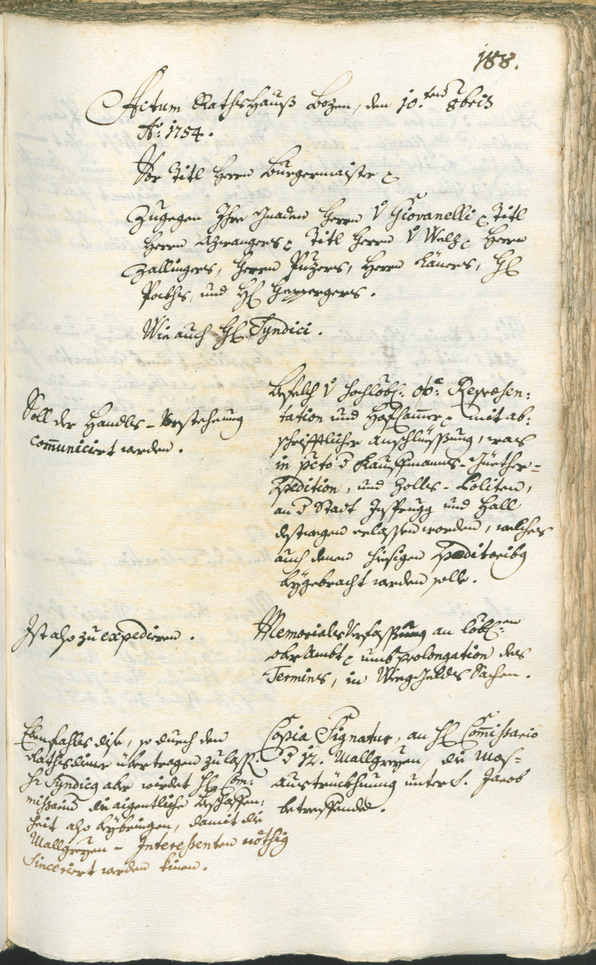 188.
Actum Rathshauß Bozen, den 10.ten 8bris
Ao: 1754.
Vor Titl Herrn Burgermaister
Zugegen Ihre Gnaden Herrn v Giovanelli Titl
Herrn Titl Herrn v Welz Herrn
Zallingers, Herrn Puzers, Herrn Käners, H:
und H:
Wie auch H: Syndici.
Soll der Handls-Vorstehung
comuniciert werden.
Befelch v hochlöbl: oö: Represen-
tation und Hofkamer mit ab-
schrifftlicher anschlüssung, was
in pcto d Kauffmanns-Güether-
Spedition, und Zolls-Politen,
an d Statt Insprugg und Hall
destwegen erlassen worden, welches
auch denen hiesigen Speditoribg
beygebracht werden solle.
Ist also zu expedieren.
Memorials Verfassung an löbl:
obr Ambt umb prolongation des
Termins, in Weeggelds Sachen.
Ebenfahls dise, so durch den
Rathsdiener übertragen zu lass:
Hr Syndicg aber wirdet H: Com-
missario die aigentliche beschaffen-
heit also beybringen, damit die
Wallgreyen-Interessenten nöthig
sinceriert werden kinen.
Copia Signatur, an H: Comissario
d 12. Mallgreyen, die Was-
austrückhnung unter S. Jacob
betreffendt.